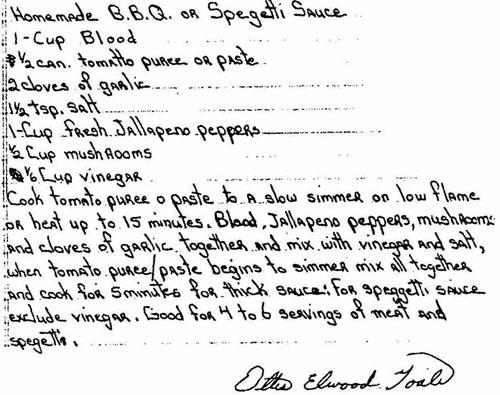 Homemade B.B.Q. or Spegetti Sauce
1-Cup Blood
1/2 can. tomatto puree or paste
2 cloves of garlic
1 1/2 tsp. salt
1-Cup fresh Jallapeno peppers
1/2 Cup mushrooms
1/6 Cup vinegar
Cook tomato puree o paste to a slow simmer on low flame
or heat up to 15 minutes. Blood, Jallapeno peppers, mushrooms
and cloves of garlic together and mix with vinegar and salt,
when tomato puree/paste begins to simmer mix all together
and cook for 5 minutes for thick sauce: For speggetti sauce
exclude vinegar. Good for 4 to 6 servings of meat and
spegetti.
Ottis Elwood Toole